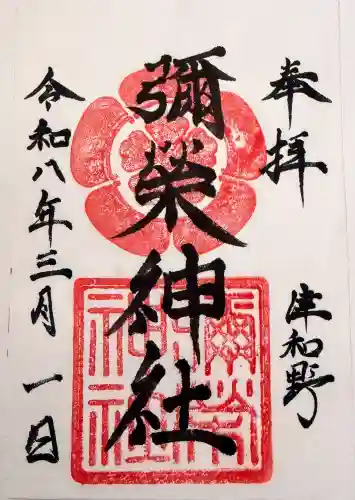 奉拝
津和野
彌榮神社
令和八年三月一日
彌榮神社